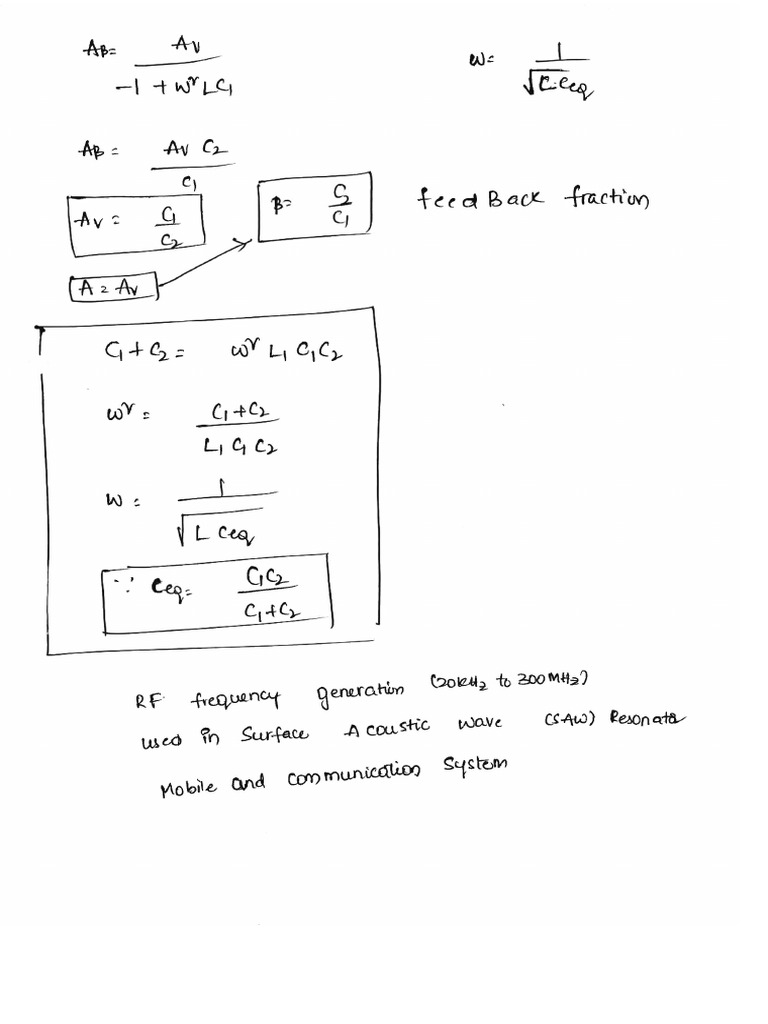 AB= Av / -1 + w² LC₁    w= 1 / √L.Ceq
AB = Av C₂ / C₁
Av = C₁ / C₂    B= C₂ / C₁    feedBack fraction
A = Av
C₁ + C₂ = w² L₁ C₁C₂
w² = C₁+C₂ / L₁ C₁ C₂
w = 1 / √L Ceq
∵ Ceq= C₁C₂ / C₁+C₂
RF frequency generation (20kHz to 300MHz)
used in Surface Acoustic wave (SAW) Resonata
Mobile and communication System